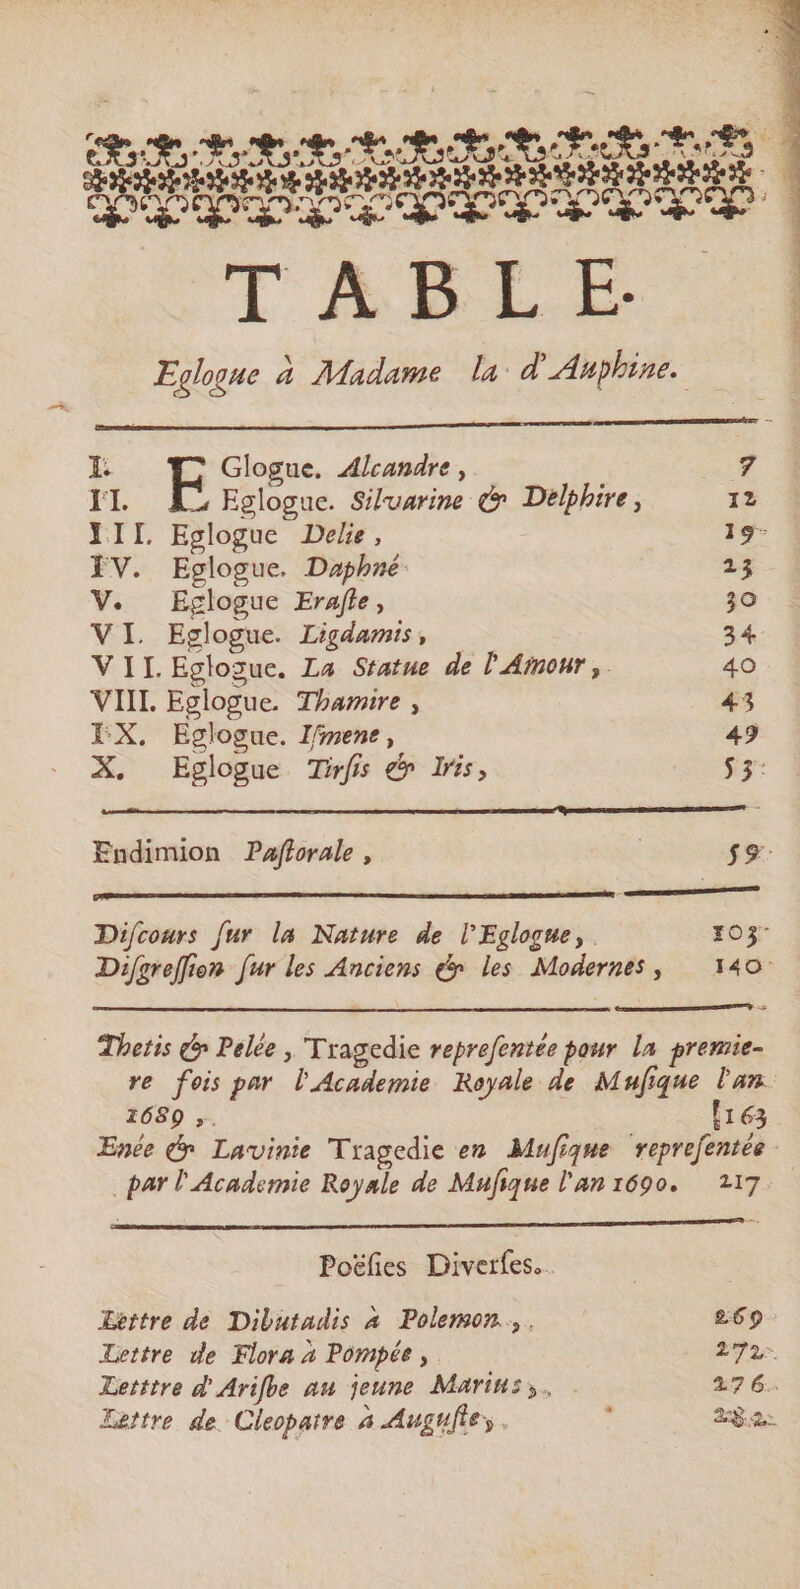 TABLE.
Eglogue à Madame la d'Auphine.
I. EGlogue. Alcandre, 7
II. Eglogue. Silvarine & Delphire, 12
III. Eglogue Delie, 19
IV. Eglogue. Daphné 23
V. Eglogue Eraſte, 30
VI. Eglogue. Ligdamis, 34
VII. Eglogue. La Statue de l'Amour, 40
VIII. Eglogue. Thamire, 43
IX. Eglogue. Iſmene, 49
X. Eglogue Tirſis & Iris, 53
Endimion Paſtorale, 59
Diſcours ſur la Nature de l'Eglogue, 103
Diſgreſſion ſur les Anciens & les Modernes, 140
Thetis & Pelée, Tragedie repreſentée pour la premie-
re fois par l'Academie Royale de Muſique l'an
1689, [163
Enée & Lavinie Tragedie en Muſique repreſentée
par l'Academie Royale de Muſique l'an 1690. 217
Poëſies Diverſes.
Lettre de Dibutadis à Polemon, 269
Lettre de Flora à Pompée, 272
Letttre d'Ariſbe au jeune Marius, 276
Lettre de Cleopatre à Auguſte, 282